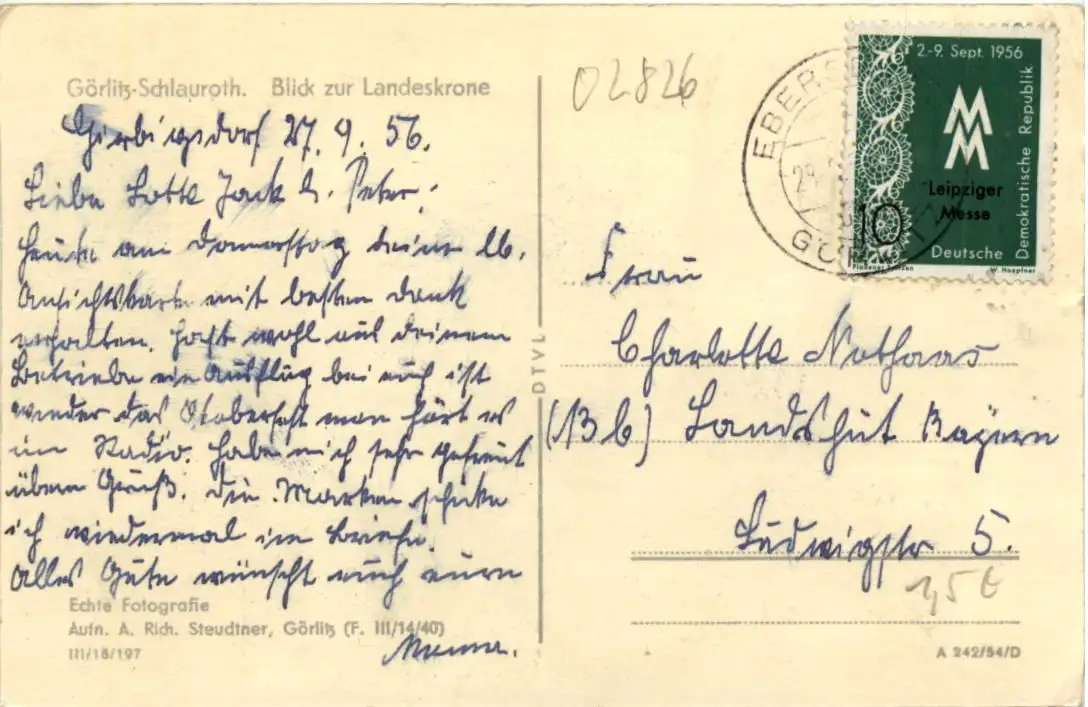 Görlitz-Schlauroth. Blick zur Landeskrone
Girbigsdorf 27. 9. 56.
Liebe Lotte Jack u. Peter,
Heute am Donnerstag deine lb.
Ansichtskarte mit besten Dank
erhalten. Hast wohl aus deinem
Betriebe ein Ausflug bei euch ist
wieder das Otoberfest man hört es
im Radio. Habe mich sehr gefreut
übern Gruß. Die Marken schicke
ich wiedermal im Briefe.
Alles Gute wünscht euch eure
Echte Fotografie
Aufn. A. Rich. Steudtner, Görlitz (F. III/14/40)
III/18/197
DTVL
02826
2.-9. Sept. 1956
Leipziger
Messe
10
Deutsche Demokratische Republik
Plauener Spitzen
W. Hoepfner
EBERS
GÖRLITZ
Frau
Charlotte Nothaas
(13b) Landshut Bayern
Ludwigstr 5.
1,5 €
A 242/54/D